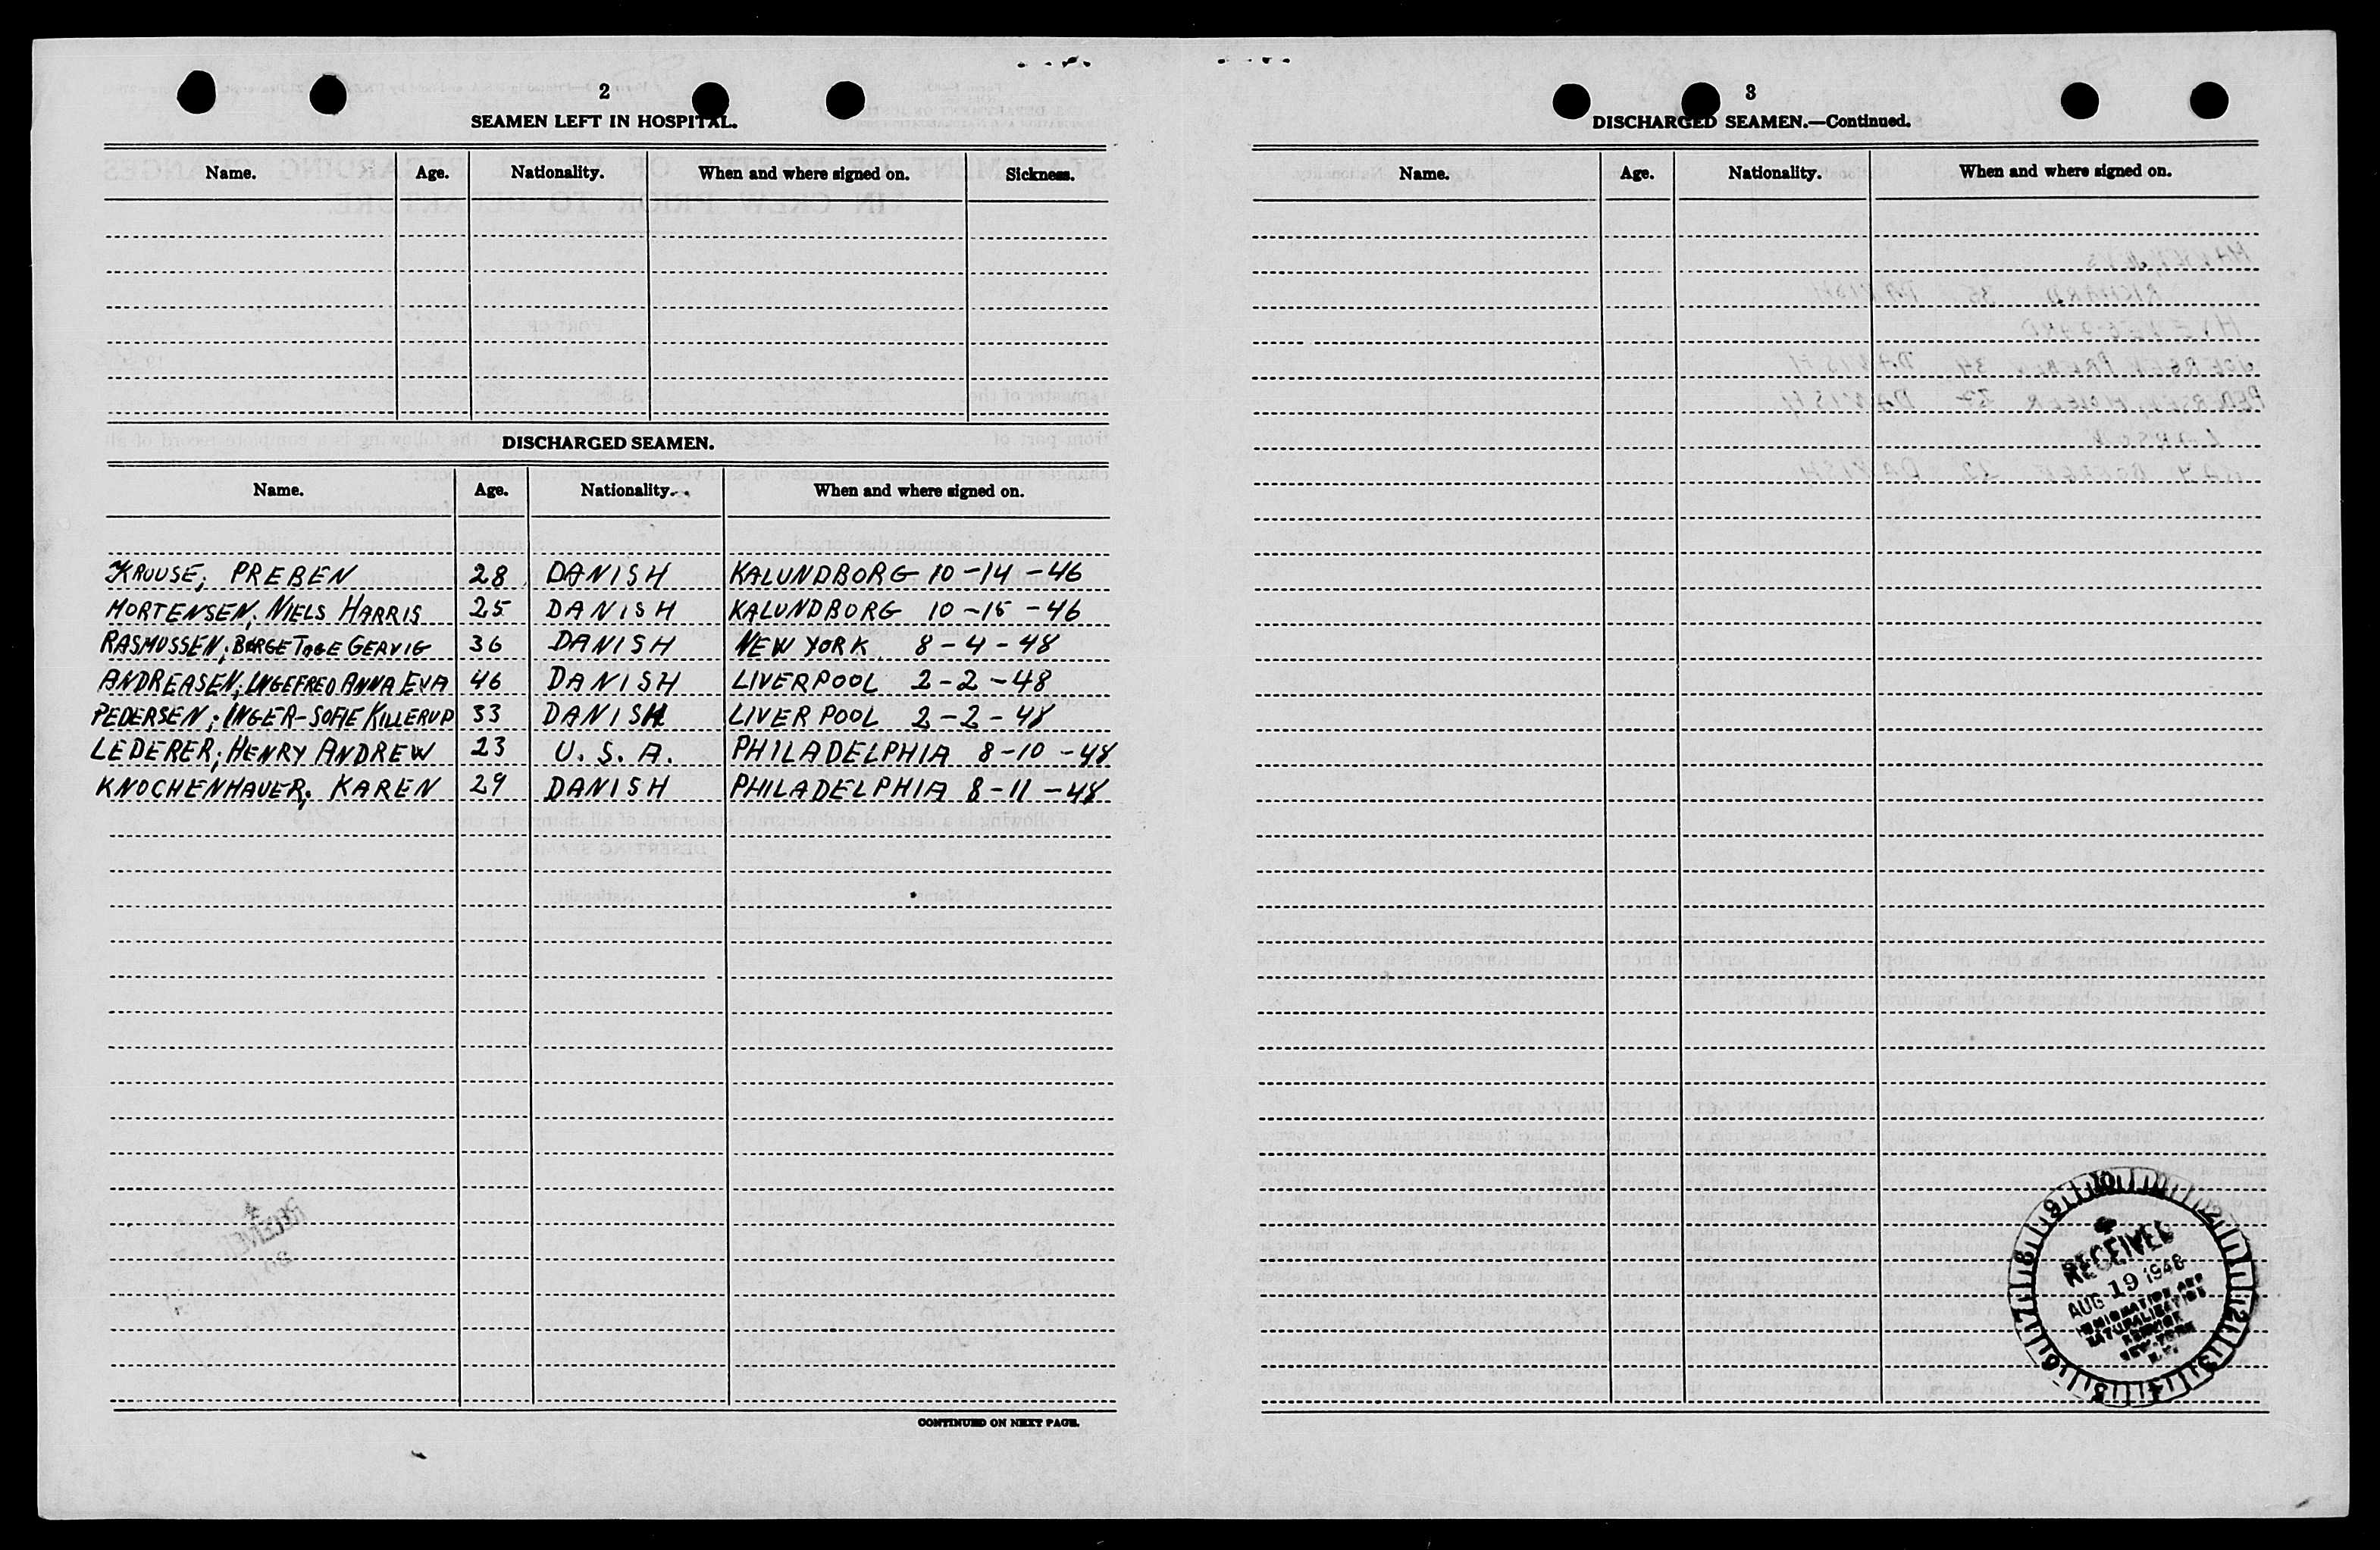 2
SEAMEN LEFT IN HOSPITAL.
Name. Age. Nationality. When and where signed on. Sickness.
DISCHARGED SEAMEN.
Name. Age. Nationality. When and where signed on.
KRUUSE; PREBEN 28 DANISH KALUNDBORG 10-14-46
MORTENSEN; NIELS HARRIS 25 DANISH KALUNDBORG 10-15-46
RASMUSSEN; BØRGE TAGE GERVIG 36 DANISH NEW YORK 8-4-48
ANDREASEN; INGEFRED ANNA EVA 46 DANISH LIVERPOOL 2-2-48
PEDERSEN; INGER-SOFIE KILLERUP 33 DANISH LIVERPOOL 2-2-48
LEDERER; HENRY ANDREW 23 U.S.A. PHILADELPHIA 8-10-48
KNOCHENHAUER; KAREN 29 DANISH PHILADELPHIA 8-11-48
CONTINUED ON NEXT PAGE.
3
DISCHARGED SEAMEN.—Continued.
Name. Age. Nationality. When and where signed on.
RECEIVED
AUG 19 1948
IMMIGRATION AND
NATURALIZATION
SERVICE
NEW YORK
N.Y.